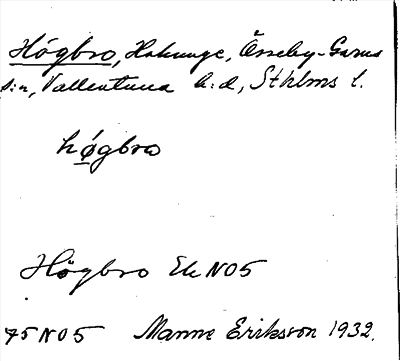 Högbro, Hakunge, Össeby-Garns
s:n, Vallentuna h:d, Sthlms l.
högbro
Högbro Ek NO5
75 NO5 Manne Eriksson 1932.